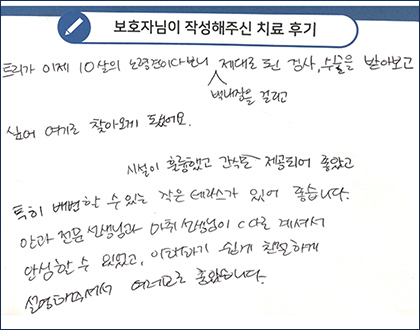 보호자님이 작성해주신 치료 후기
트리가 이제 10살의 노령견이다보니 제대로 된 검사, 수술을 받아보고
백내장을 걸리고
싶어 여기로 찾아오게 됐어요.
시설이 훌륭했고 간식도 제공되어 좋았고
특히 배변할 수 있는 작은 테라스가 있어 좋습니다.
안과 전문 선생님과 마취 선생님이 따로 계셔서
안심할 수 있었고, 이해하기 쉽게 친절하게
설명해주셔서 여러모로 좋았습니다.